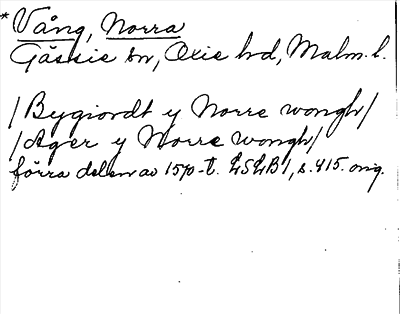 * Vång, Norra
Gässie sn, Oxie hd, Malm. l.
/Bygiordt y Norre wongh/
/Ager y Norre wongh/
förra delen av 1570-t. LSLB 1, s. 415. orig.